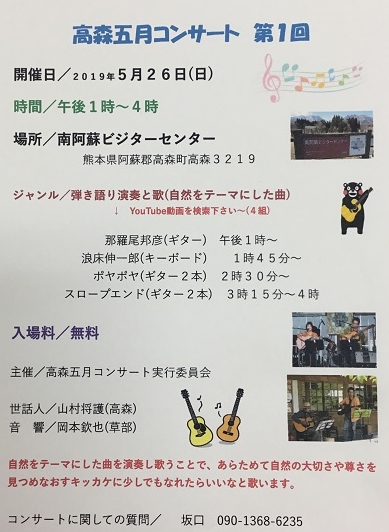 高森五月コンサート 第１回
開催日／２０１９年５月２６日(日)
時間／午後１時～４時
場所／南阿蘇ビジターセンター
熊本県阿蘇郡高森町高森３２１９
ジャンル／弾き語り演奏と歌(自然をテーマにした曲)
↓ YouTube動画を検索下さい～(４組)
那羅尾邦彦(ギター) 午後１時～
浪床伸一郎(キーボード) １時４５分～
ボヤボヤ(ギター２本) ２時３０分～
スロープエンド(ギター２本) ３時１５分～４時
入場料／無料
主催／高森五月コンサート実行委員会
世話人／山村将護(高森)
音 響／岡本欽也(草部)
自然をテーマにした曲を演奏し歌うことで、あらためて自然の大切さや尊さを
見つめなおすキッカケに少しでもなれたらいいなと思います。
コンサートに関しての質問／ 坂口 090-1368-6235